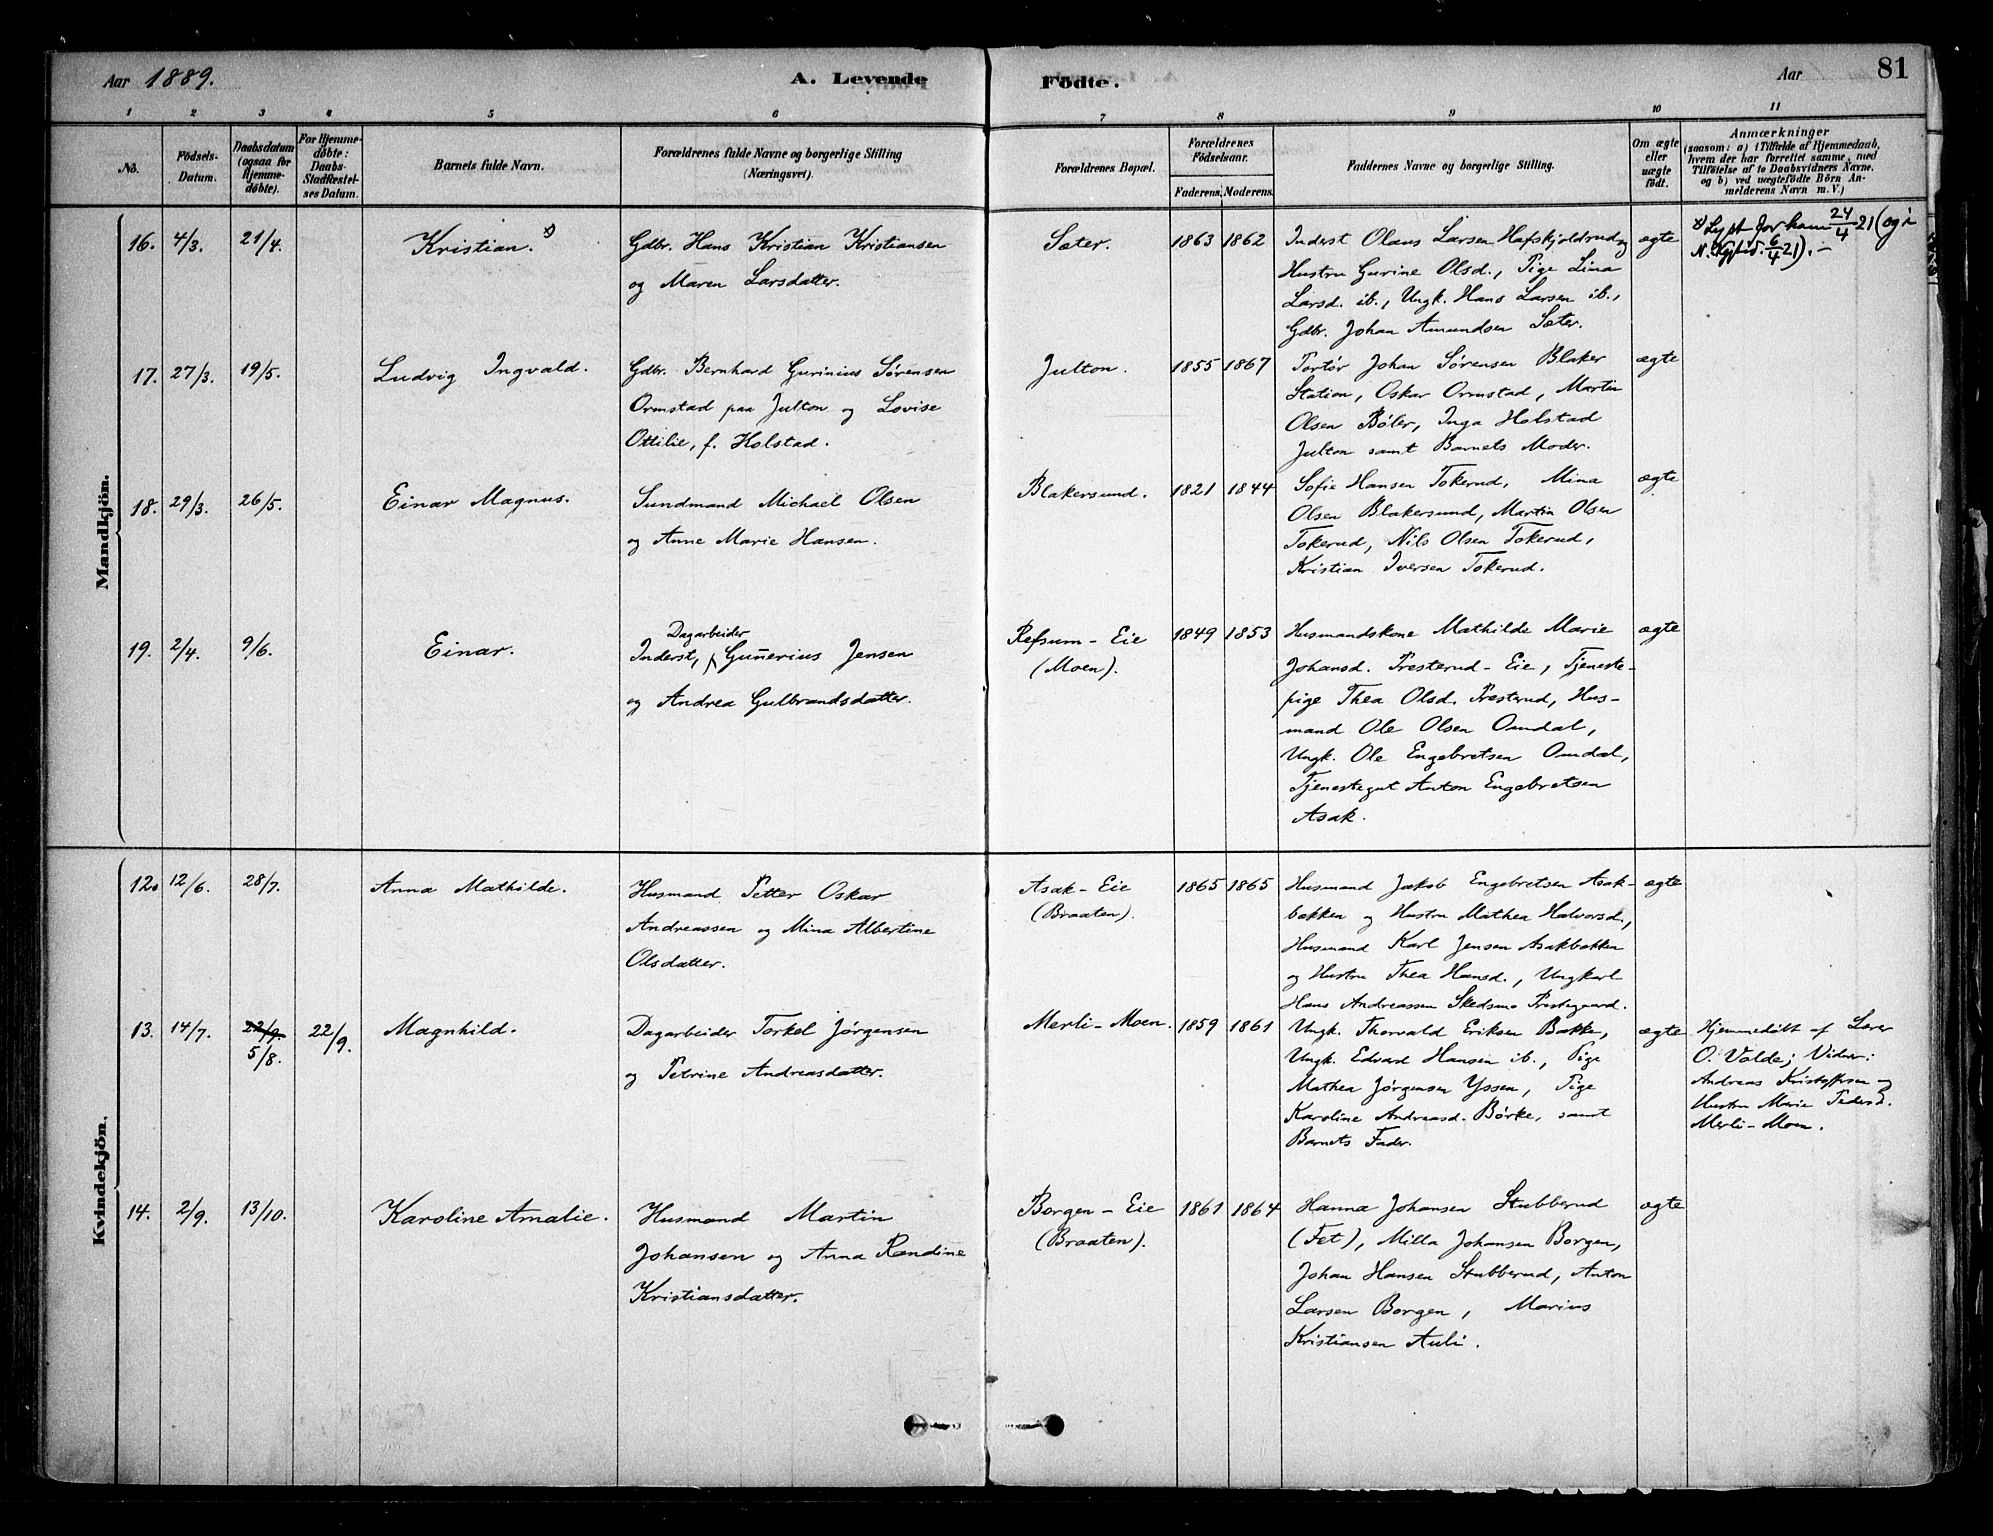 Aar 1889.
A. Levende
Födte.
Aar
81
1 2 3 4 5 6 7 8 9 10 11
No.
Födsels-
Datum.
Daabsdatum
(ogsaa for
Hjemme-
døbte).
For Hjemme-
døbte:
Daabs-
Stadfæstel-
ses Datum.
Barnets fulde Navn.
Forældrenes fulde Navne og borgerlige Stilling
(Næringsvei).
Forældrenes Bopæl.
Forældrenes
Födselsaar.
Faderens. Moderens.
Faddernes Navne og borgerlige Stilling.
Om ægte
eller
uægte
født.
Anmærkninger
(saasom: a) i Tilfælde af Hjemmedaab,
hvem der har forrettet samme, med
Tilföielse af to Daabsvidners Navne.
og b) ved uægtefödte Börn An-
melderens Navn m. V.)
Mandkjön.
16. 4/3. 21/4. Kristian. x)
Gdbr. Hans Kristian Kristiansen
og Maren Larsdatter.
Sæter. 1863 1862
Inderst Olaus Larsen Hafskjoldrud og
Hustru Gurine Olsd., Pige Lina
Larsd. ib., Ungk. Hans Larsen ib.,
Gdbr. Johan Amundsen Sæter.
ægte
x) Lyst for ham 24/4 21 (og i
N. 6/4 21). –
17. 27/3. 19/5. Ludvig Ingvald.
Gdbr. Bernhard Gurinius Sørensen
Ormstad paa Julton og Lovise
Ottilie, f. Holstad.
Julton. 1855 1867
Portør Johan Sørensen Blaker
Station, Oskar Ormstad, Martin
Olsen Bøler, Inga Holstad
Julton samt Barnets Moder.
ægte
18. 29/3. 26/5. Einar Magnus.
Sundmand Michael Olsen
og Anne Marie Hansen.
Blakersund. 1821 1844
Sofie Hansen Tokerud, Mina
Olsen Blakersund, Martin Olsen
Tokerud, Nils Olsen Tokerud,
Kristian Iversen Tokerud.
ægte
19. 2/4. 9/6. Einar.
Dagarbeider
Inderst, Gunerius Jensen
og Andrea Gulbrandsdatter.
Refsum – Eie
(Moen).
1849 1853
Husmandskone Mathilde Marie
Johansd. Presterud – Eie, Tjeneste-
pige Thea Olsd. Presterud, Hus-
mand Ole Olsen Omdal,
Ungk. Ole Engebretsen Omdal,
Tjenestegut Anton Engebretsen
Asak.
ægte
Kvindekjön.
12. 12/6. 28/7. Anna Mathilde.
Husmand Petter Oskar
Andreassen og Mina Albertine
Olsdatter.
Asak – Eie
(Braaten).
1865 1865
Husmand Jakob Engebretsen Asak-
bakken og Hustru Mathea Halvorsd.,
Husmand Karl Jensen Asakbakken
og Hustru Thea Hansd., Ungkarl
Hans Andreassen Skedsmo Prestegaard.
ægte
13. 14/7. 22/9. 22/9. Magnhild.
5/8.
Dagarbeider Torkel Jørgensen
og Petrine Andreasdatter.
Merli – Moen. 1859 1861
Ungk. Thorvald Eriksen Bakke,
Ungk. Edvard Hansen ib., Pige
Mathea Jørgensen Yssen, Pige
Karoline Andreasd. Børke, samt
Barnets Fader.
ægte
Hjemmedøbt af Lærer
O. Volde; Vidner:
Andreas Kristoffersen og
Hustru Marie Pedersd.
Merli – Moen.
14. 2/9. 13/10. Karoline Amalie.
Husmand Martin
Johansen og Anna Randine
Kristiansdatter.
Borgen – Eie
(Braaten).
1861 1864
Hanna Johansen Stubberud
(Fet), Milla Johansen Borgen,
Johan Hansen Stubberud, Anton
Larsen Borgen, Marius
Kristiansen Auli.
ægte